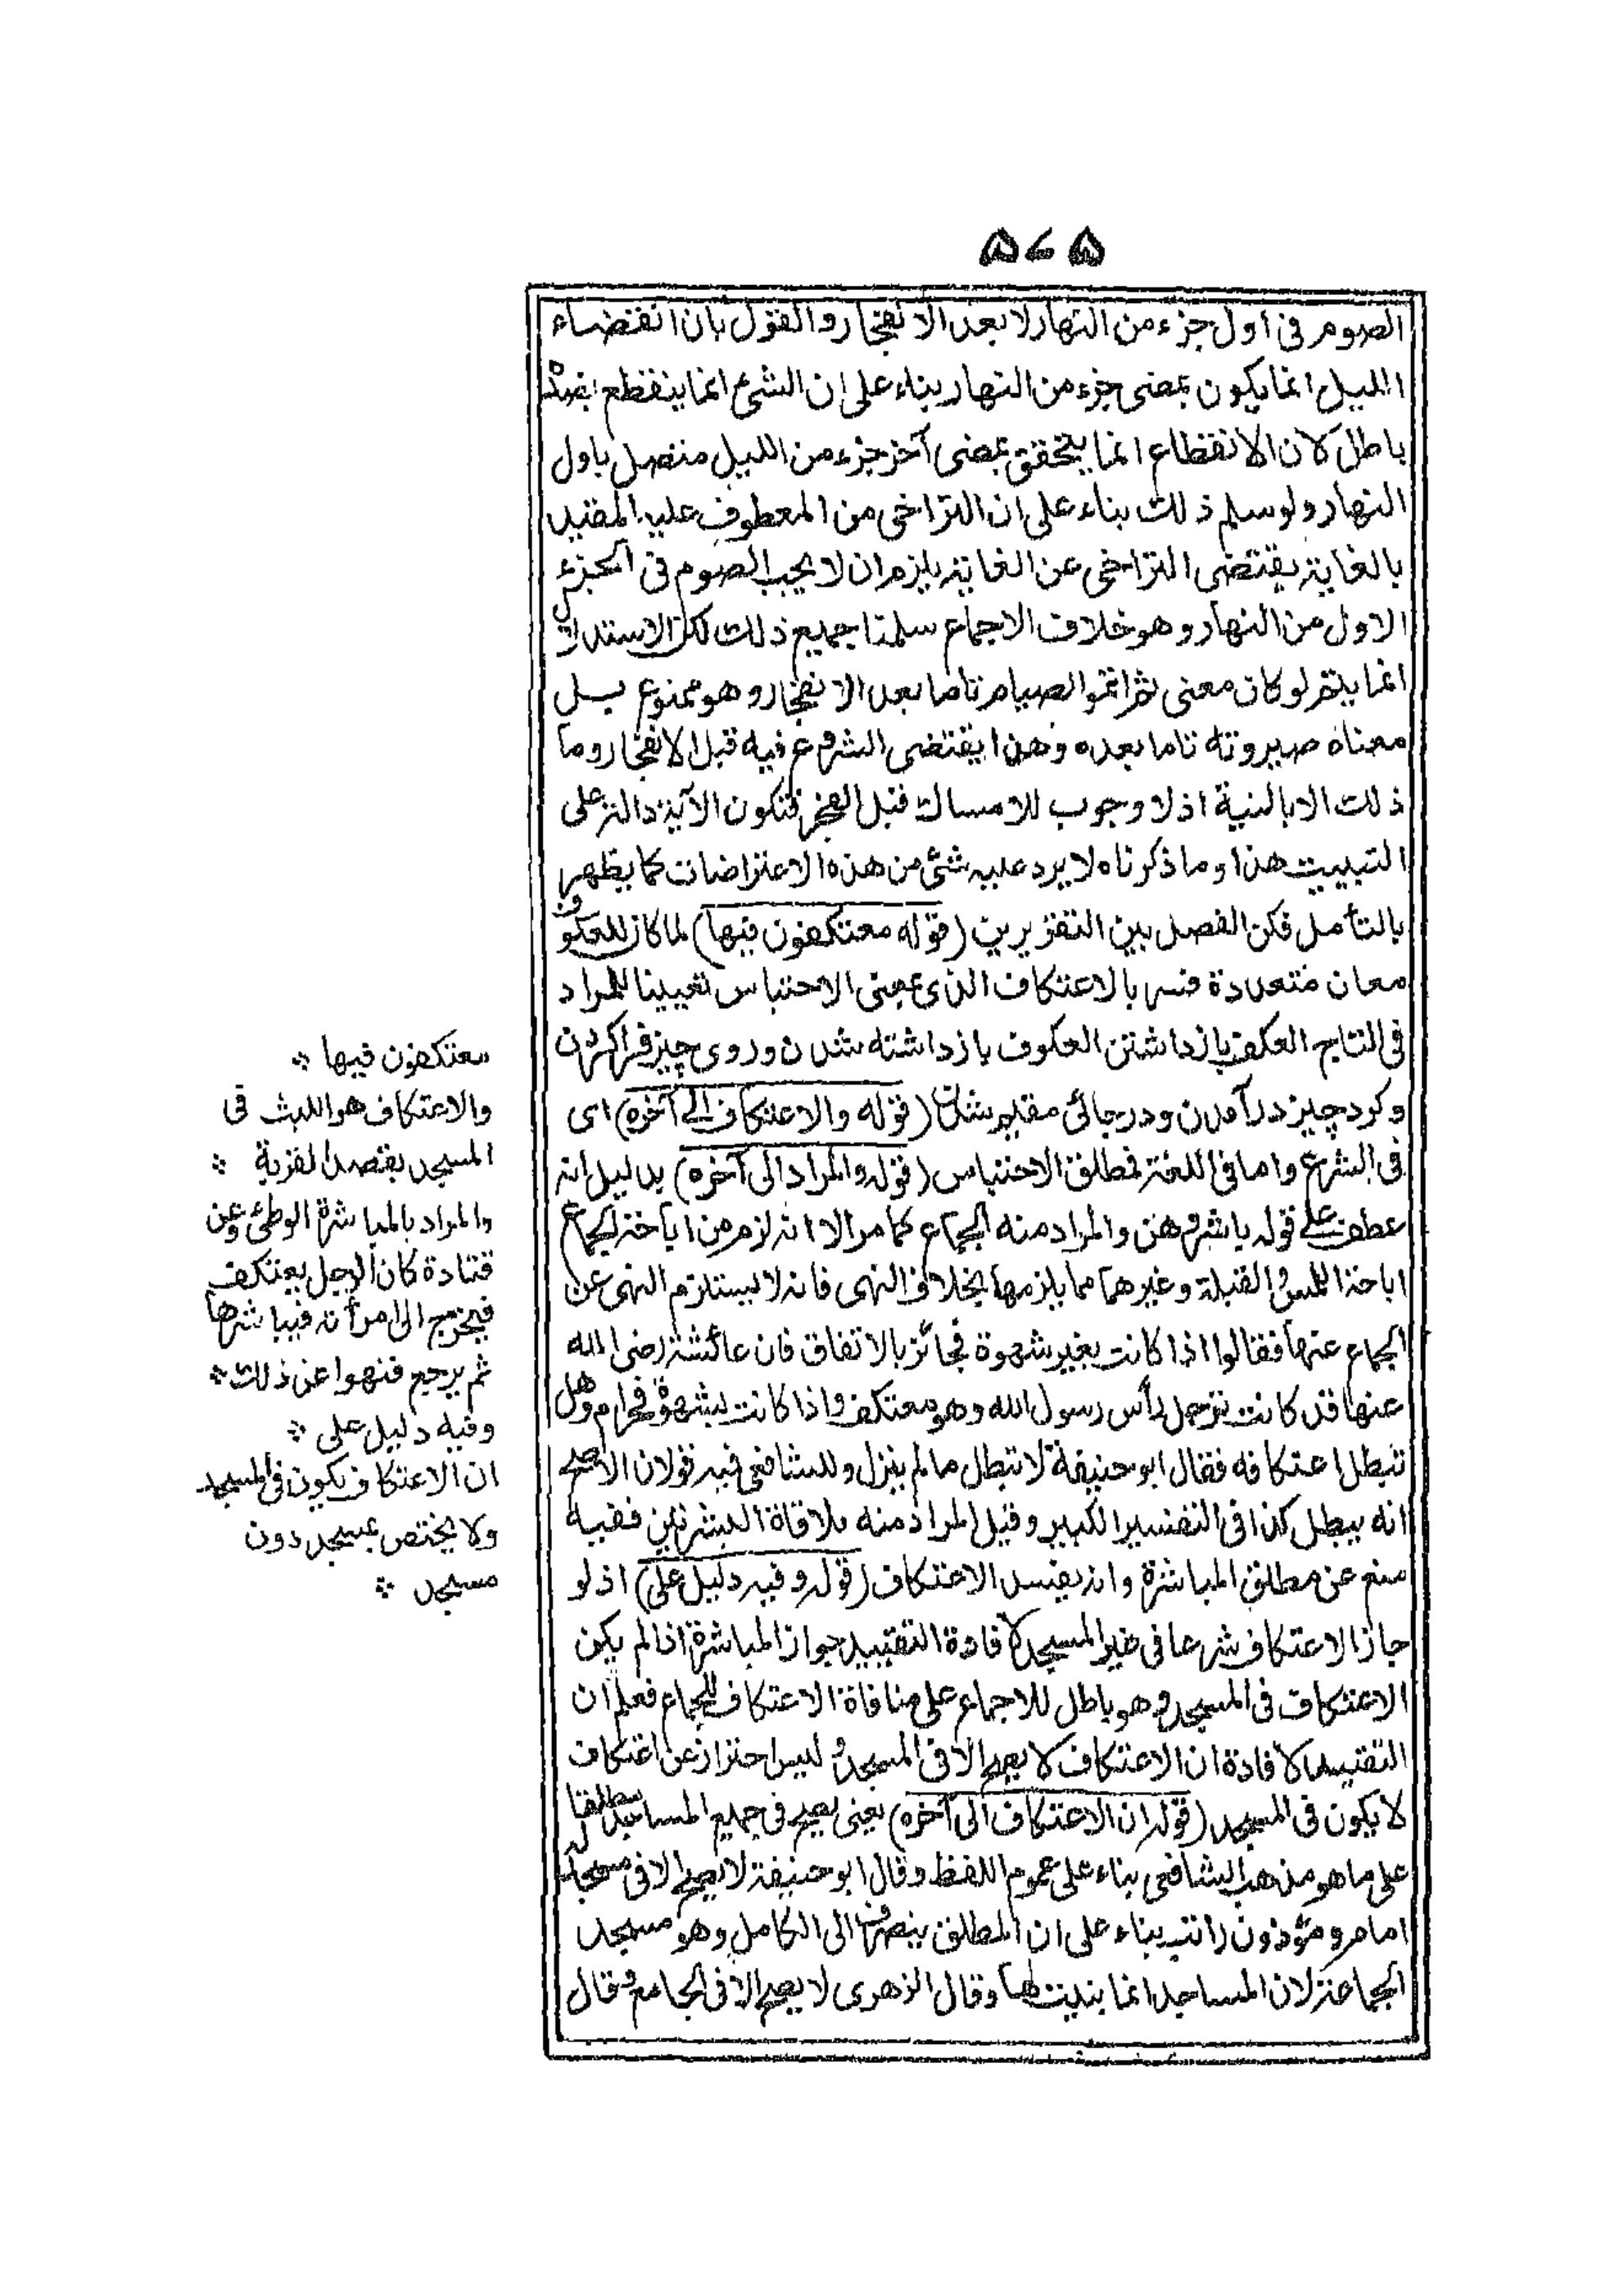 ۵۷۵
الصوم فى اول جزء من النهار لا بعد الانفجار والقول بان انقضاء
الليل انما يكون بمضى جزء من النهار بناء على ان الشئ انما ينقطع بضده
باطل لان الانقطاع انما يتحقق بمضى آخر جزء من الليل متصل باول
النهار ولو سلم ذلك بناء على ان التراخى من المعطوف عليه المقيد
بالغاية يقتضى التراخى عن الغاية يلزم ان لا يجب الصوم فى الجزء
الاول من النهار وهو خلاف الاجماع سلمنا جميع ذلك لكن الاستدلال
انما يتم لو كان معنى ثم اتموا الصيام تاما بعد الانفجار وهو ممنوع بل
معناه صيروته تاما بعده وهذا يقتضى الشروع فيه قبل الانفجار وما
ذلك الا بالنية اذ لا وجوب للامساك قبل الفجر فتكون الآية دالة على
التبييت هذا وما ذكرناه لا يرد عليه شئ من هذه الاعتراضات كما يظهر
بالتأمل فكن الفصل بين التقريرين (قوله معتكفون فيها) لما كان للعكوف
معان متعددة فسره بالاعتكاف الذى بمعنى الاحتباس تعيينا للمراد
فى التاج العكف بازداشتن العكوف بازداشته شدن وروى چيز فراكردن
وكرد چيز درآمدن ودرجائى مقيم شدن (قوله والاعتكاف الى آخره) اى
فى الشرع واما فى اللغة فمطلق الاحتباس (قوله والمراد الى آخره) بدليل انه
عطف على قوله باشروهن والمراد منه الجماع كما مر الا انه لزم من اباحة الجماع
اباحة اللمس والقبلة وغيرهما مما يلزمها بخلاف النهى فانه لا يستلزم النهى عن
الجماع عنها فقالوا اذا كانت بغير شهوة فجائز بالاتفاق فان عائشة رضى الله
عنها قد كانت ترجل رأس رسول الله وهو معتكف واذا كانت بشهوة فحرام وهل
تبطل اعتكافه فقال ابو حنيفة لا تبطل ما لم ينزل وللشافعى فيه قولان الاصح
انه يبطل كذا فى التفسير الكبير وقيل المراد منه ملاقاة البشرتين ففيه
منع عن مطلق المباشرة وانه يفسد الاعتكاف (قوله وفيه دليل على) اذ لو
جاز الاعتكاف شرعا فى غير المسجد لافادة التقييد جواز المباشرة اذا لم يكن
الاعتكاف فى المسجد وهو باطل للاجماع على منافاة الاعتكاف للجماع فعلم ان
التقييد لافادة ان الاعتكاف لا يصح الا فى المسجد وليس احتراز عن اعتكاف
لا يكون فى المسجد (قوله ان الاعتكاف الى آخره) يعنى يصح فى جميع المساجد مطلقا
على ما هو مذهب الشافعى بناء على عموم اللفظ وقال ابو حنيفة لا يصح الا فى مسجد له
امام ومؤذون راتب بناء على ان المطلق ينصرف الى الكامل وهو مسجد
الجماعة لان المساجد انما بنيت لها وقال الزهرى لا يصح الا فى الجامع وقال
معتكفون فيها ؞
والاعتكاف هو اللبث فى
المسجد بقصد القربة ؞
والمراد بالمباشرة الوطئ وعن
قتادة كان الرجل يعتكف
فيخرج الى امرأته فيباشرها
ثم يرجع فنهوا عن ذلك ؞
وفيه دليل على ؞
ان الاعتكاف يكون فى المسجد
ولا يختص بمسجد دون
مسجد ؞